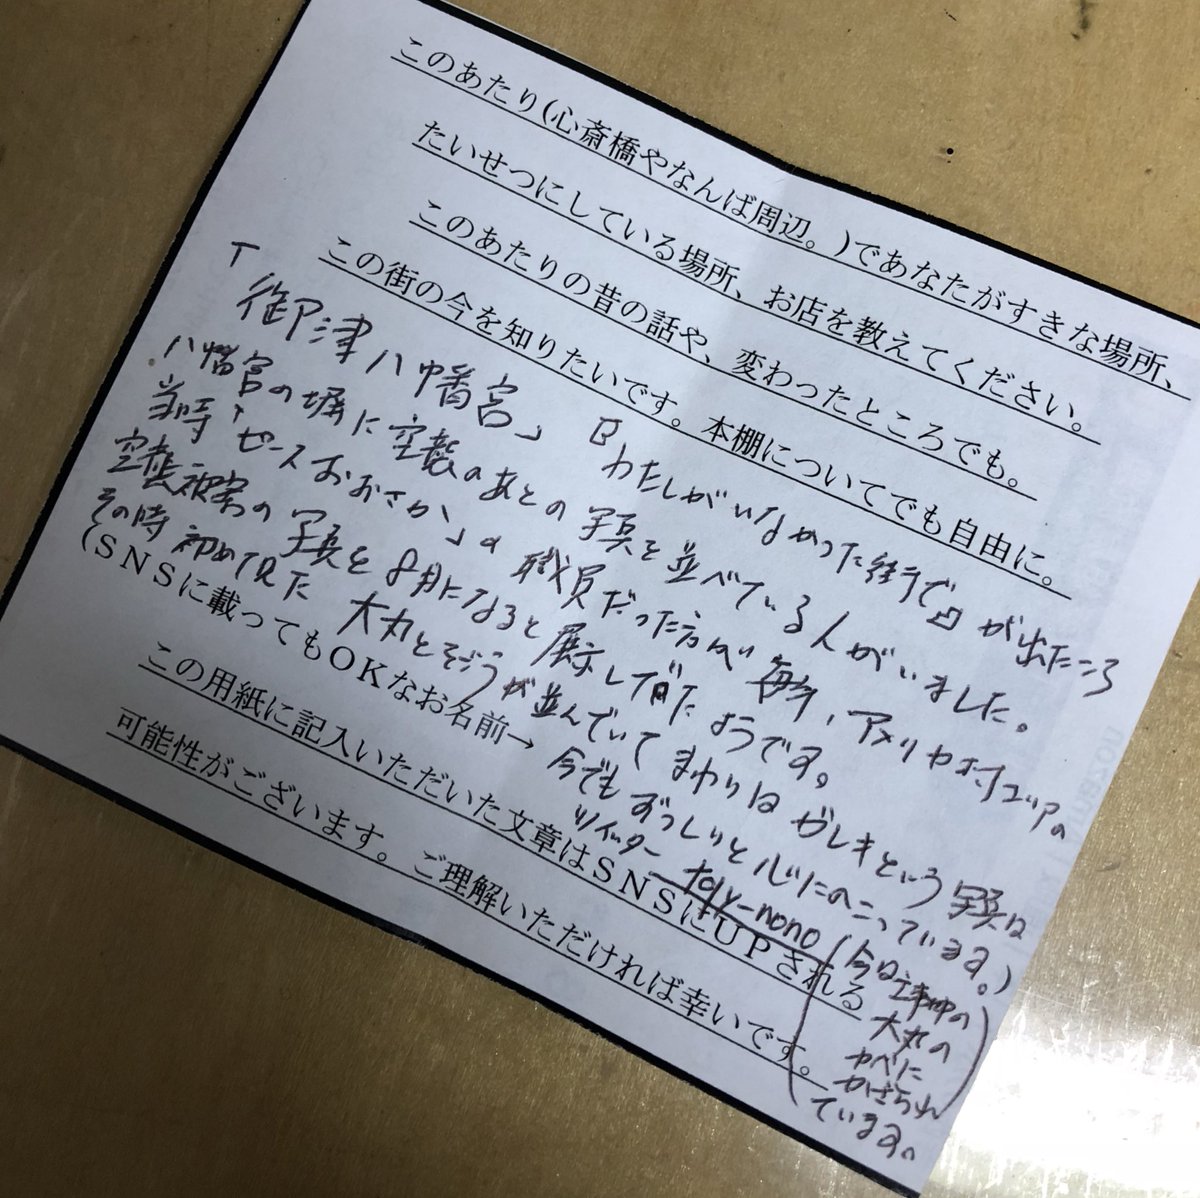 このあたり(心斎橋やなんば周辺。)であなたがすきな場所、
たいせつにしている場所、お店を教えてください。
このあたりの昔の話や、変わったところでも。
この街の今を知りたいです。本棚についてでも自由に。
「御津八幡宮」 『わたしがいなかった街で』が出たころ
八幡宮の堀に空襲のあとの写真を並べている人がいました。
当時「ピースおおさか」の職員だった方が毎年、アメリカ村エリアの
空襲被害の写真を8月になると展示してたようです。
その時初めて見た 大丸とそごうが並んでいてまわりはガレキという写真は
今でもずっしりと心にのこっています。)
(SNSに載ってもOKなお名前→
ツイッター
この用紙に記入いただいた文章はSNSにUPされる
可能性がございます。ご理解いただければ幸いです。
(今は工事中の
大丸の
かべに
かざられ
ています。)